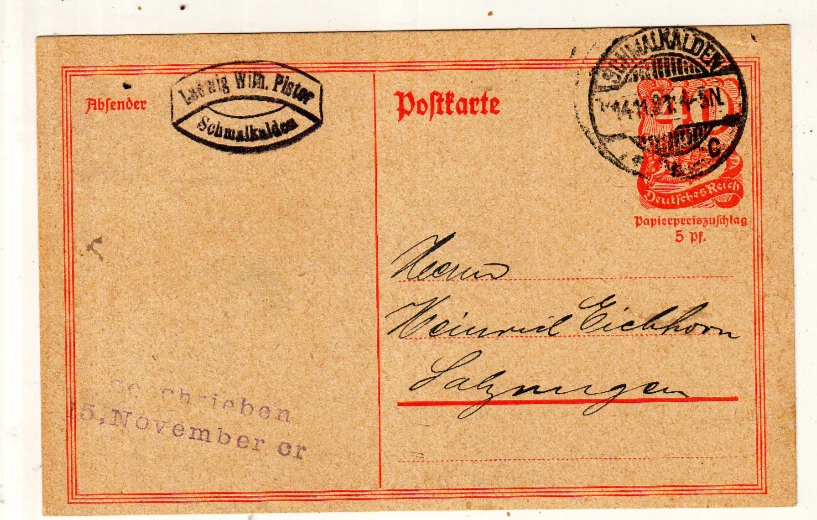 Absender
Ludwig Wilh. Pistor
Schmalkalden
Postkarte
SCHMALKALDEN
14.11.21. 4-5N.
c
40
Deutsches Reich
Papierpreiszuschlag
5 Pf.
Herrn
Heinrich Eichhorn
Salzungen
geschrieben
15. November cr